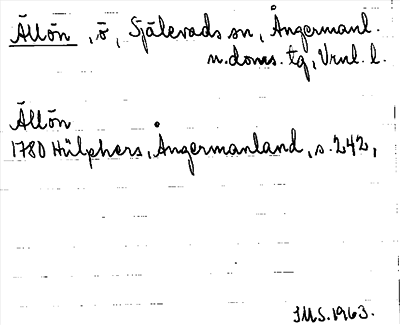 Ällön, ö, Själevads sn, Ångermanl.
n. doms. tg, Vrnl. l.
Ällön
1780 Hülphers, Ångermanland, s. 242,
IMS. 1963.